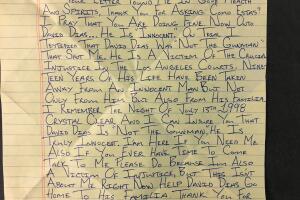 YOUR LETTER FOUND I'M IN GOOD HEALTH
AND SPIRITS. THANK YOU FOR ASKING. COMO ESTAS?
I PRAY THAT YOU ARE DOING FINE. NOW ONTO
DAVID DIAS... HE IS INNOCENT. AT TRIAL I
TESTIFIED THAT DAVID DIAS WAS NOT THE GUNMAN
THAT SHOT ME. HE IS A VICTIM OF THE CRUCIAL
INJUSTICE IN THE LOS ANGELES COURTS. NINE
TEEN YEARS OF HIS LIFE HAVE BEEN TAKEN
AWAY FROM AN INNOCENT MAN BUT NOT
ONLY FROM HIM BUT ALSO FROM HIS FAMILIA.
I REMEMBER THE NIGHT OF JULY 1996
CRYSTAL CLEAR AND I CAN INSURE YOU THAT
DAVID DIAS IS NOT THE GUNMAN. HE IS
TRULY INNOCENT. I AM HERE IF YOU NEED ME
ALSO IF YOU EVER HAVE TIME TO COME
TALK TO ME PLEASE DO BECAUSE I'M ALSO
A VICTIM OF INJUSTICE, BUT THIS ISN'T
ABOUT ME RIGHT NOW HELP DAVID DIAS GO
HOME TO HIS FAMILIA THANK YOU FOR